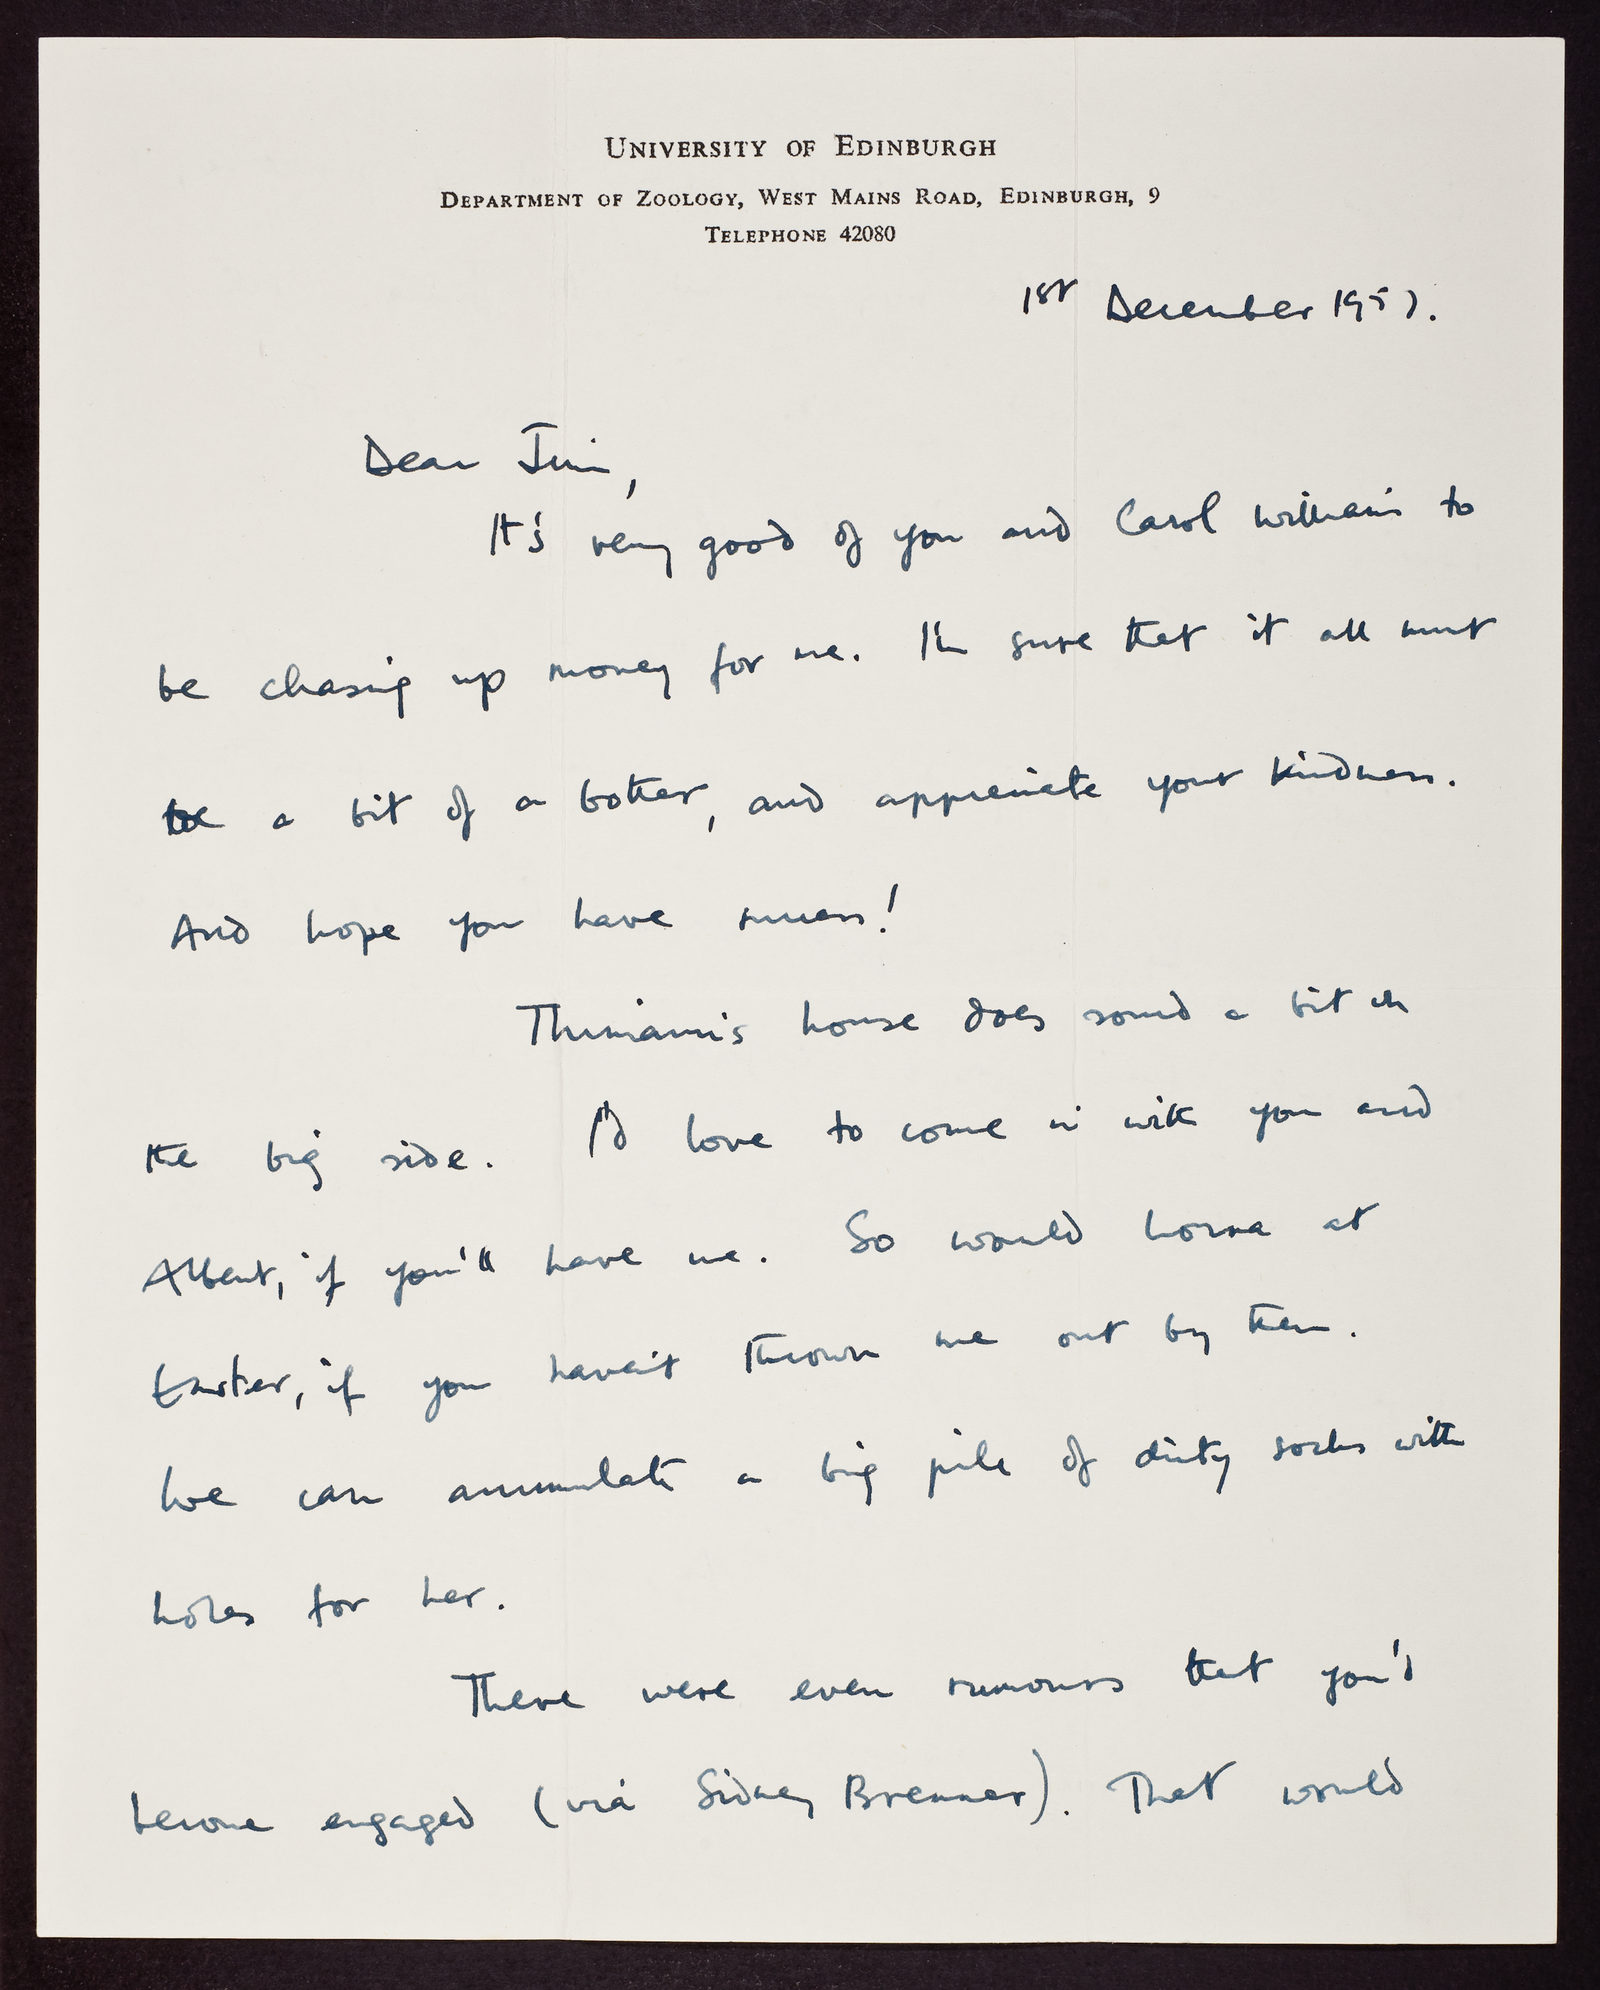 UNIVERSITY OF EDINBURGH
DEPARTMENT OF ZOOLOGY, WEST MAINS ROAD, EDINBURGH, 9
TELEPHONE 42080
1st December 1957.
Dear Jim,
It's very good of you and Carol Williams to
be chasing up money for me. I'm sure that it all must
be a bit of a bother, and appreciate your kindness.
And hope you have success!
Thimann's house does sound a bit on
the big side. I'd love to come in with you and
Albert, if you'll have me. So would Lorna at
Easter, if you haven't thrown me out by then.
We can accumulate a big pile of dirty socks with
holes for her.
There were even rumours that you'd
become engaged (via Sidney Brenner). That would